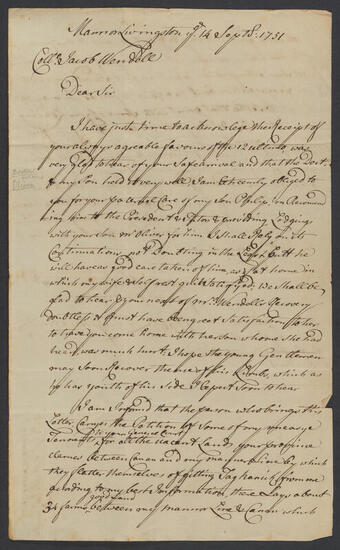 Mannor Livingston ye 14 Septr: 1751
Collo Jacob Wendell
Dear Sir
I have just time to acknowlege the Receipt of
your always agreable favours of the 12 ultimo, was
very glad to hear of your Safe arrival and that the
to my Son held it very well, I am Extreemly obliged to
you for your pa care of my Son Philip in
ing him to the President & Tutor & providing Lodging
with your Son Mr Oliver for him I shall
Confirmation not Doubting in the Least butt he
will have as good care taken of him, as if at home in
which my wife & self rest quite Satisfied, we shall be
glad to hear of Mrs Wendells Recovery
Doubtless it must have been great Satisfaction to her
to have you come home with her Son whome She had
heard was much hurt. I hope the young Gentleman
may Soon Recover the use of his Limbs, which as
he has youth of his Side I Expect Soon to hear
I am Informd that the person who brings this
Letter, Carrys the Petition of Some of my uneasye
Tennants to your General Court for all the vacant Lands your province
claimes between Canan and my mannor Line by which
they flatter themselves of gitting Taghanick from me
acording to my best Information there Lays about
34 farms good Land between my mannor Line & Canan which